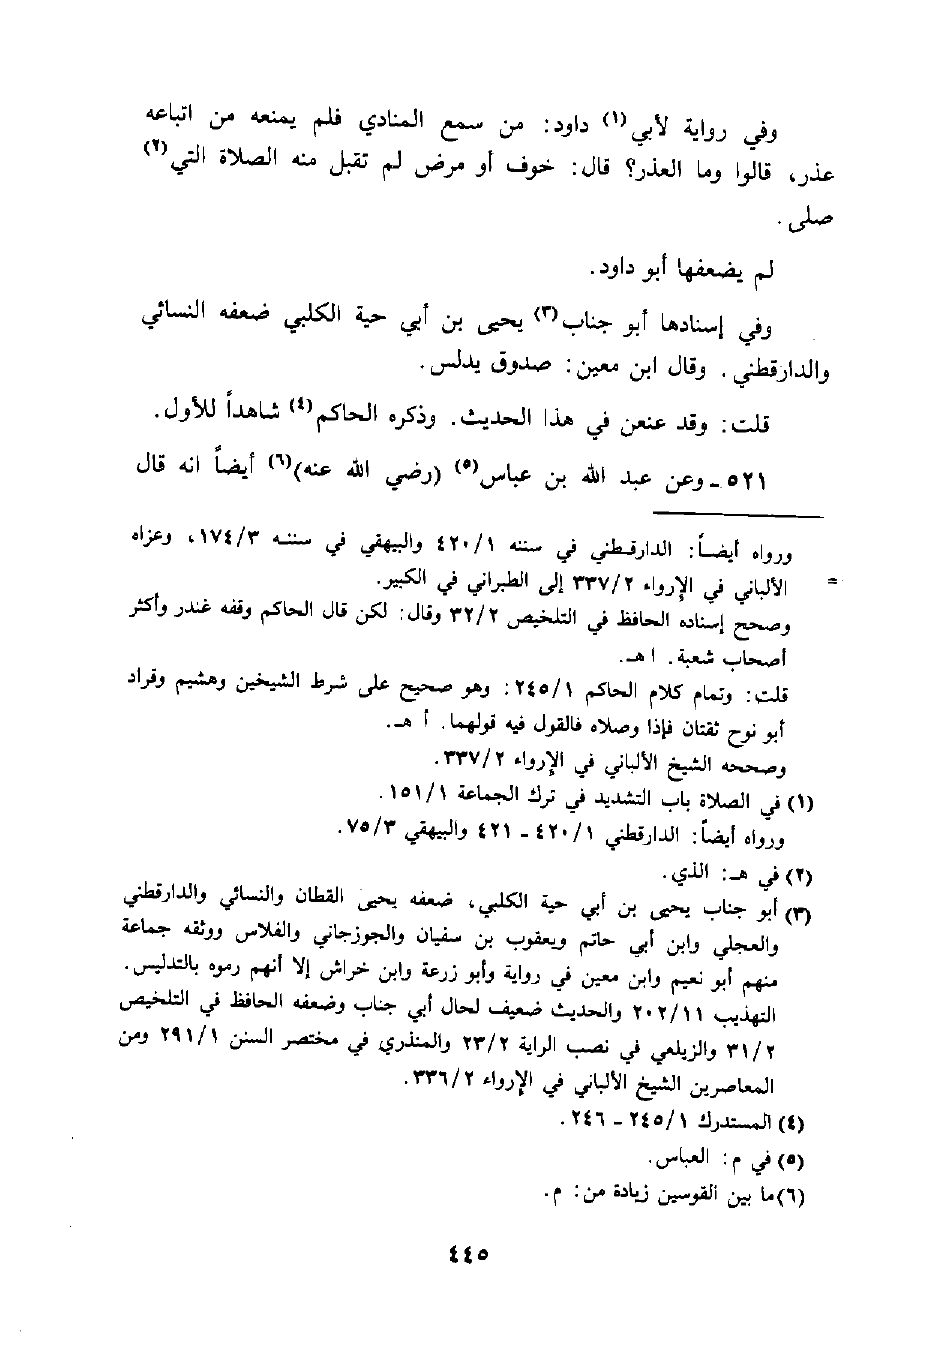 وفي رواية لأبي(١) داود: من سمع المنادي فلم يمنعه من اتباعه
عذر، قالوا وما العذر؟ قال: خوف أو مرض لم تقبل منه الصلاة التي(٢)
صلى.
لم يضعفها أبو داود.
وفي إسنادها أبو جناب(٣) يحيى بن أبي حية الكلبي ضعفه النسائي
والدارقطني. وقال ابن معين: صدوق يدلس.
قلت: وقد عنعن في هذا الحديث. وذكره الحاكم(٤) شاهداً للأول.
٥٢١ ـ وعن عبد الله بن عباس(٥) (رضي الله عنه)(٦) أيضاً انه قال
ورواه أيضاً: الدارقطني في سننه ٤٢٠/١ والبيهقي في سننه ١٧٤/٣، وعزاه
= الألباني في الإرواء ٣٣٧/٢ إلى الطبراني في الكبير.
وصحح إسناده الحافظ في التلخيص ٣٢/٢ وقال: لكن قال الحاكم وقفه غندر وأكثر
أصحاب شعبة. ا هـ.
قلت: وتمام كلام الحاكم ٢٤٥/١: وهو صحيح على شرط الشيخين وهشيم وقراد
أبو نوح ثقتان فإذا وصلاه فالقول فيه قولهما. أ هـ.
وصححه الشيخ الألباني في الإرواء ٣٣٧/٢.
(١) في الصلاة باب التشديد في ترك الجماعة ١٥١/١.
ورواه أيضاً: الدارقطني ٤٢٠/١ ـ ٤٢١ والبيهقي ٧٥/٣.
(٢) في هـ: الذي.
(٣) أبو جناب يحيى بن أبي حية الكلبي، ضعفه يحيى القطان والنسائي والدارقطني
والعجلي وابن أبي حاتم ويعقوب بن سفيان والجوزجاني والفلاس ووثقه جماعة
منهم أبو نعيم وابن معين في رواية وأبو زرعة وابن خراش إلا أنهم رموه بالتدليس.
التهذيب ٢٠٢/١١ والحديث ضعيف لحال أبي جناب وضعفه الحافظ في التلخيص
٣١/٢ والزيلعي في نصب الراية ٢٣/٢ والمنذري في مختصر السنن ٢٩١/١ ومن
المعاصرين الشيخ الألباني في الإرواء ٣٣٦/٢.
(٤) المستدرك ٢٤٥/١ ـ ٢٤٦.
(٥) في م: العباس.
(٦) ما بين القوسين زيادة من: م.
٤٤٥